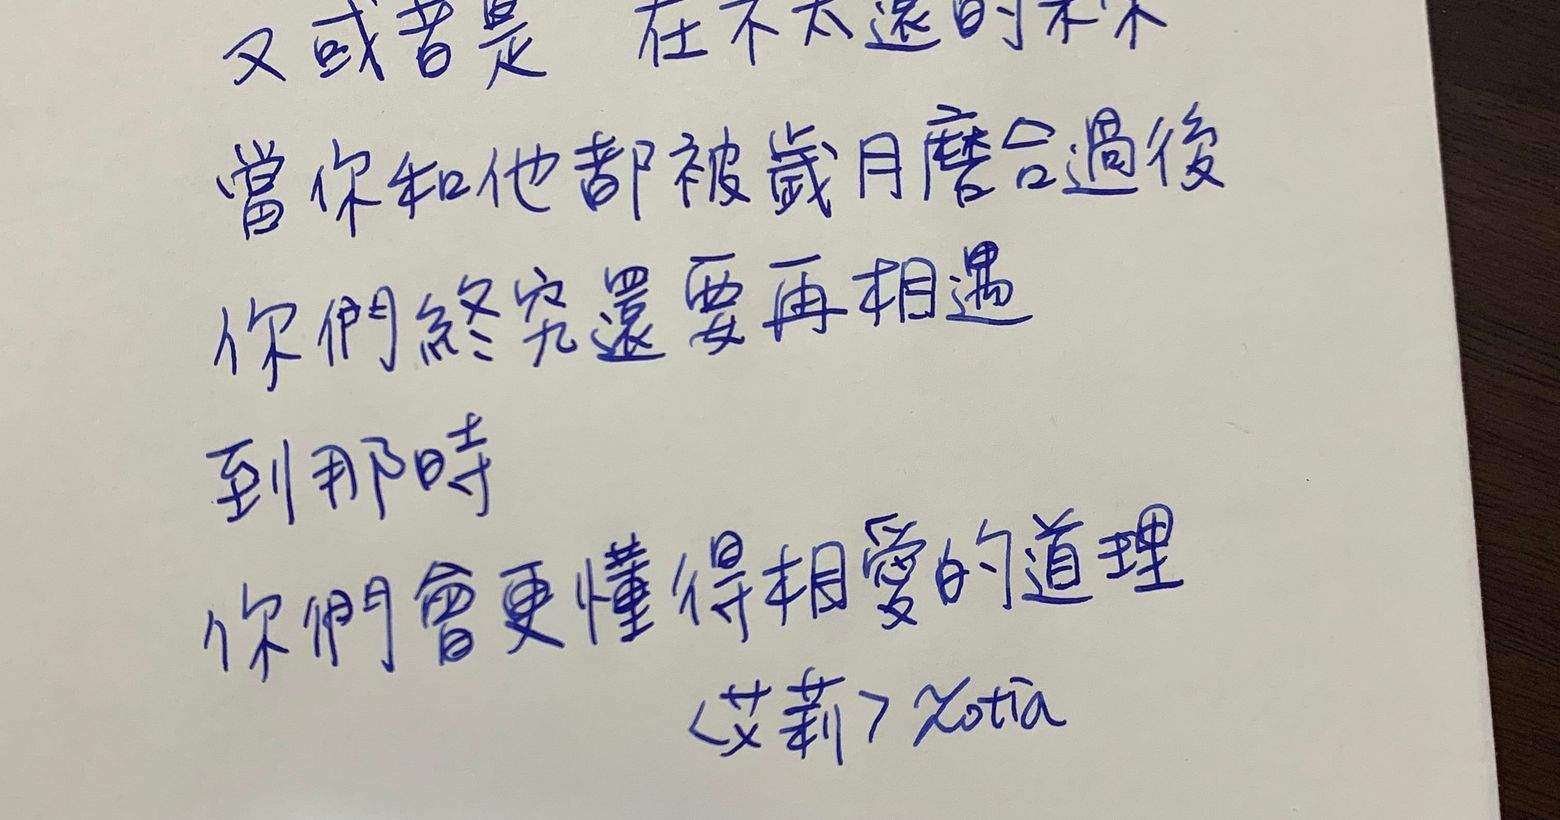 又或者是 在不太遠的未來
當你和他都被歲月磨合過後
你們終究還要再相遇
到那時
你們會更懂得相愛的道理
<艾莉> Zotia